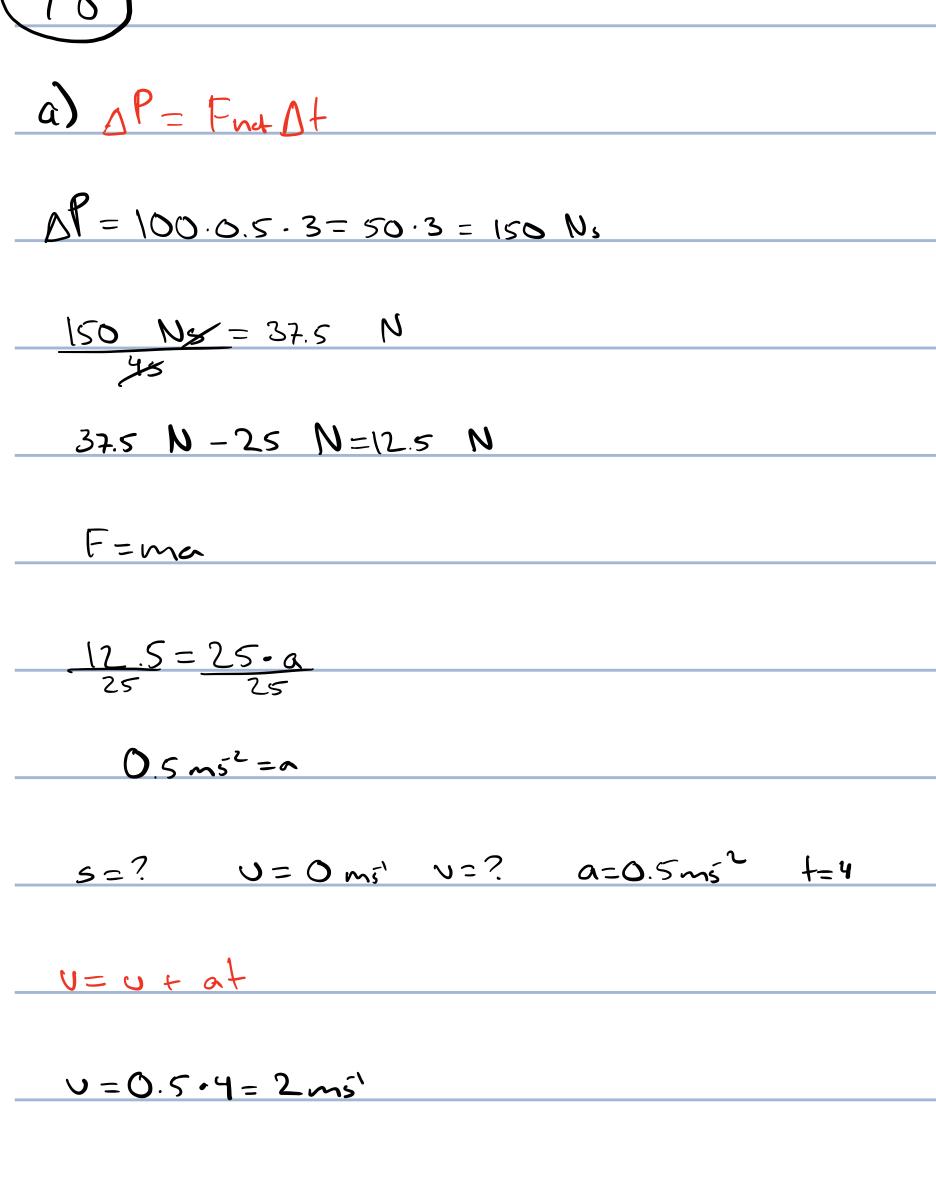 18
a) ΔP = Fnet Δt
ΔP = 100·0.5·3 = 50·3 = 150 Ns
150 Ns = 37.5 N
4s
37.5 N - 25 N = 12.5 N
F = ma
12.5 = 25·a
25 25
0.5 ms⁻² = a
s = ? u = 0 ms⁻¹ v = ? a = 0.5 ms⁻² t = 4
v = u + at
v = 0.5·4 = 2 ms⁻¹